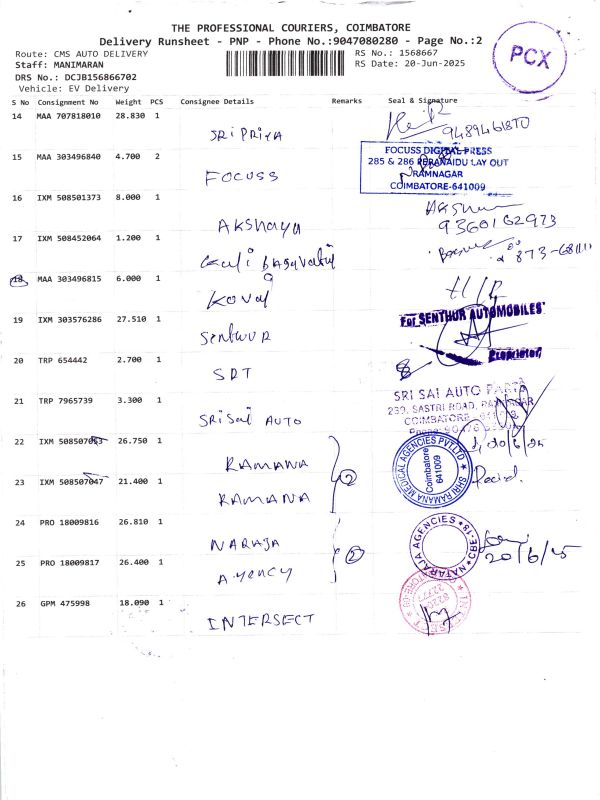 THE PROFESSIONAL COURIERS, COIMBATORE
Delivery Runsheet - PNP - Phone No.:9047080280 - Page No.:2
Route: CMS AUTO DELIVERY
RS No.: 1568667
Staff: MANIMARAN
RS Date: 20-Jun-2025
DRS No.: DCJB156866702
Vehicle: EV Delivery
PCX
S No Consignment No Weight PCS Consignee Details Remarks Seal & Signature
14 MAA 707818010 28.830 1
SRI PRIYA
15 MAA 303496840 4.700 2
FOCUSS
FOCUSS DIGITAL PRESS
285 & 286 PERANAIDU LAY OUT
RAMNAGAR
COIMBATORE-641009
16 IXM 508501373 8.000 1
Akshaya
9360162973
17 IXM 508452064 1.200 1
Kali Bagavathi
18 MAA 303496815 6.000 1
Koval
19 IXM 303576286 27.510 1
Senthur
For SENTHUR AUTOMOBILES
Proprietor
20 TRP 654442 2.700 1
SDT
21 TRP 7965739 3.300 1
SRI Sai AUTO
SRI SAI AUTO PARTS
COIMBATORE
22 IXM 508507 26.750 1
RAMANA
20/6/25
SHRI RAMANA MEDICAL AGENCIES PVT LTD
Coimbatore
641009
23 IXM 508507047 21.400 1
RAMANA
2
24 PRO 18009816 26.810 1
NARAJA
NATARAJA AGENCIES CBE-18
20/6/25
25 PRO 18009817 26.400 1
Agency
26 GPM 475998 18.090 1
INTERSECT